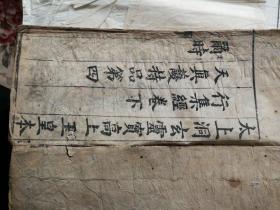 太上洞玄靈寶高上玉皇本
行集經卷下
天真護持品第四
爾時